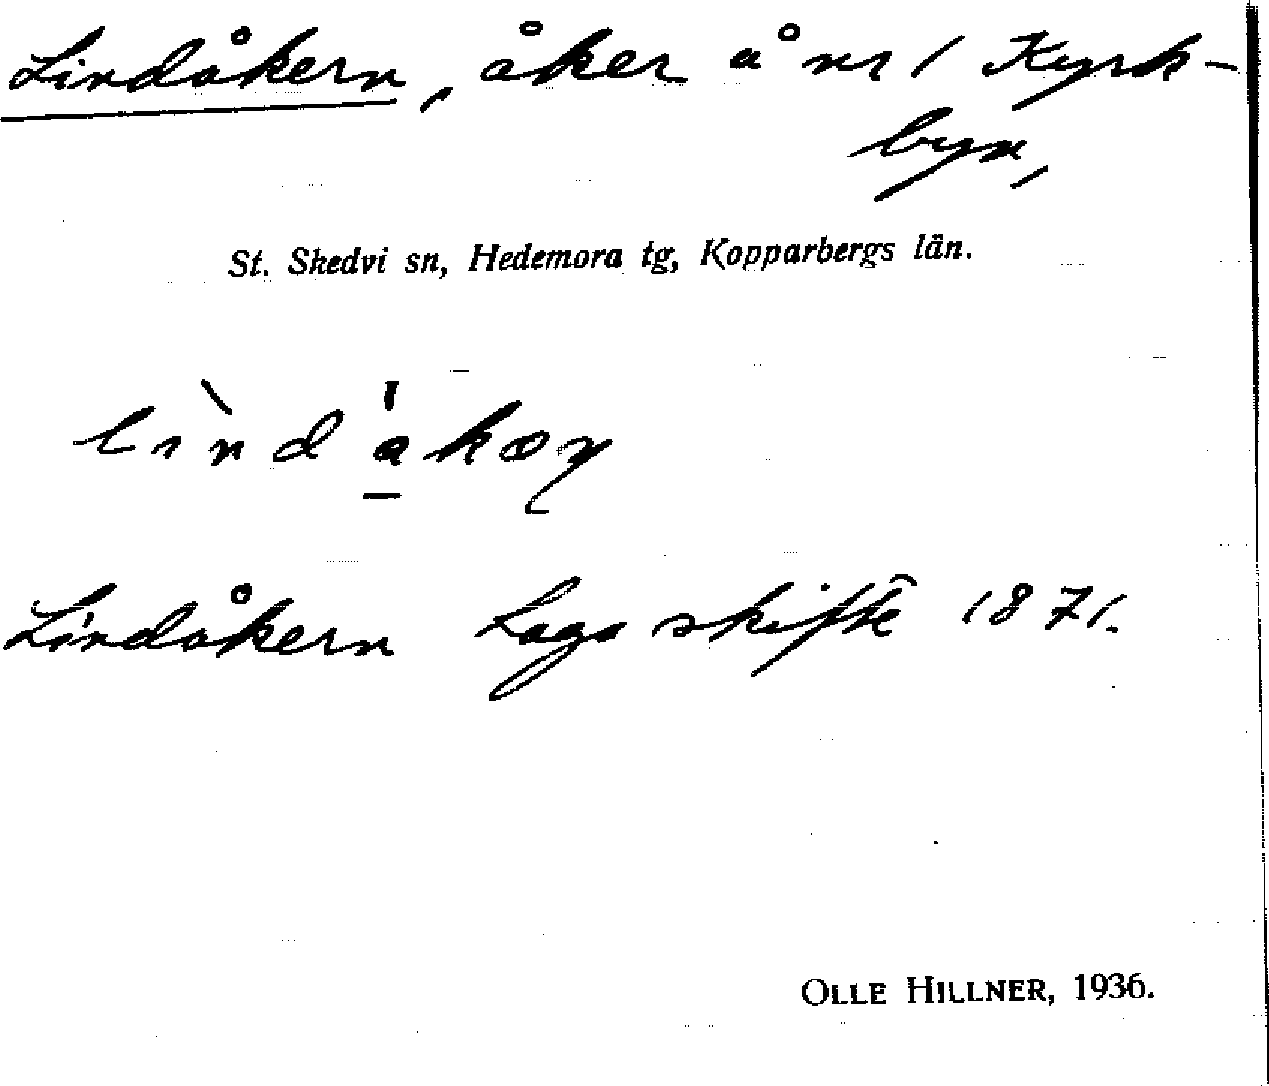 Lindåkern, åker å nr 1 Kyrk-
byn,
St. Skedvi sn, Hedemora tg, Kopparbergs län.
Lindåkern Laga skifte 1871.
OLLE HILLNER, 1936.